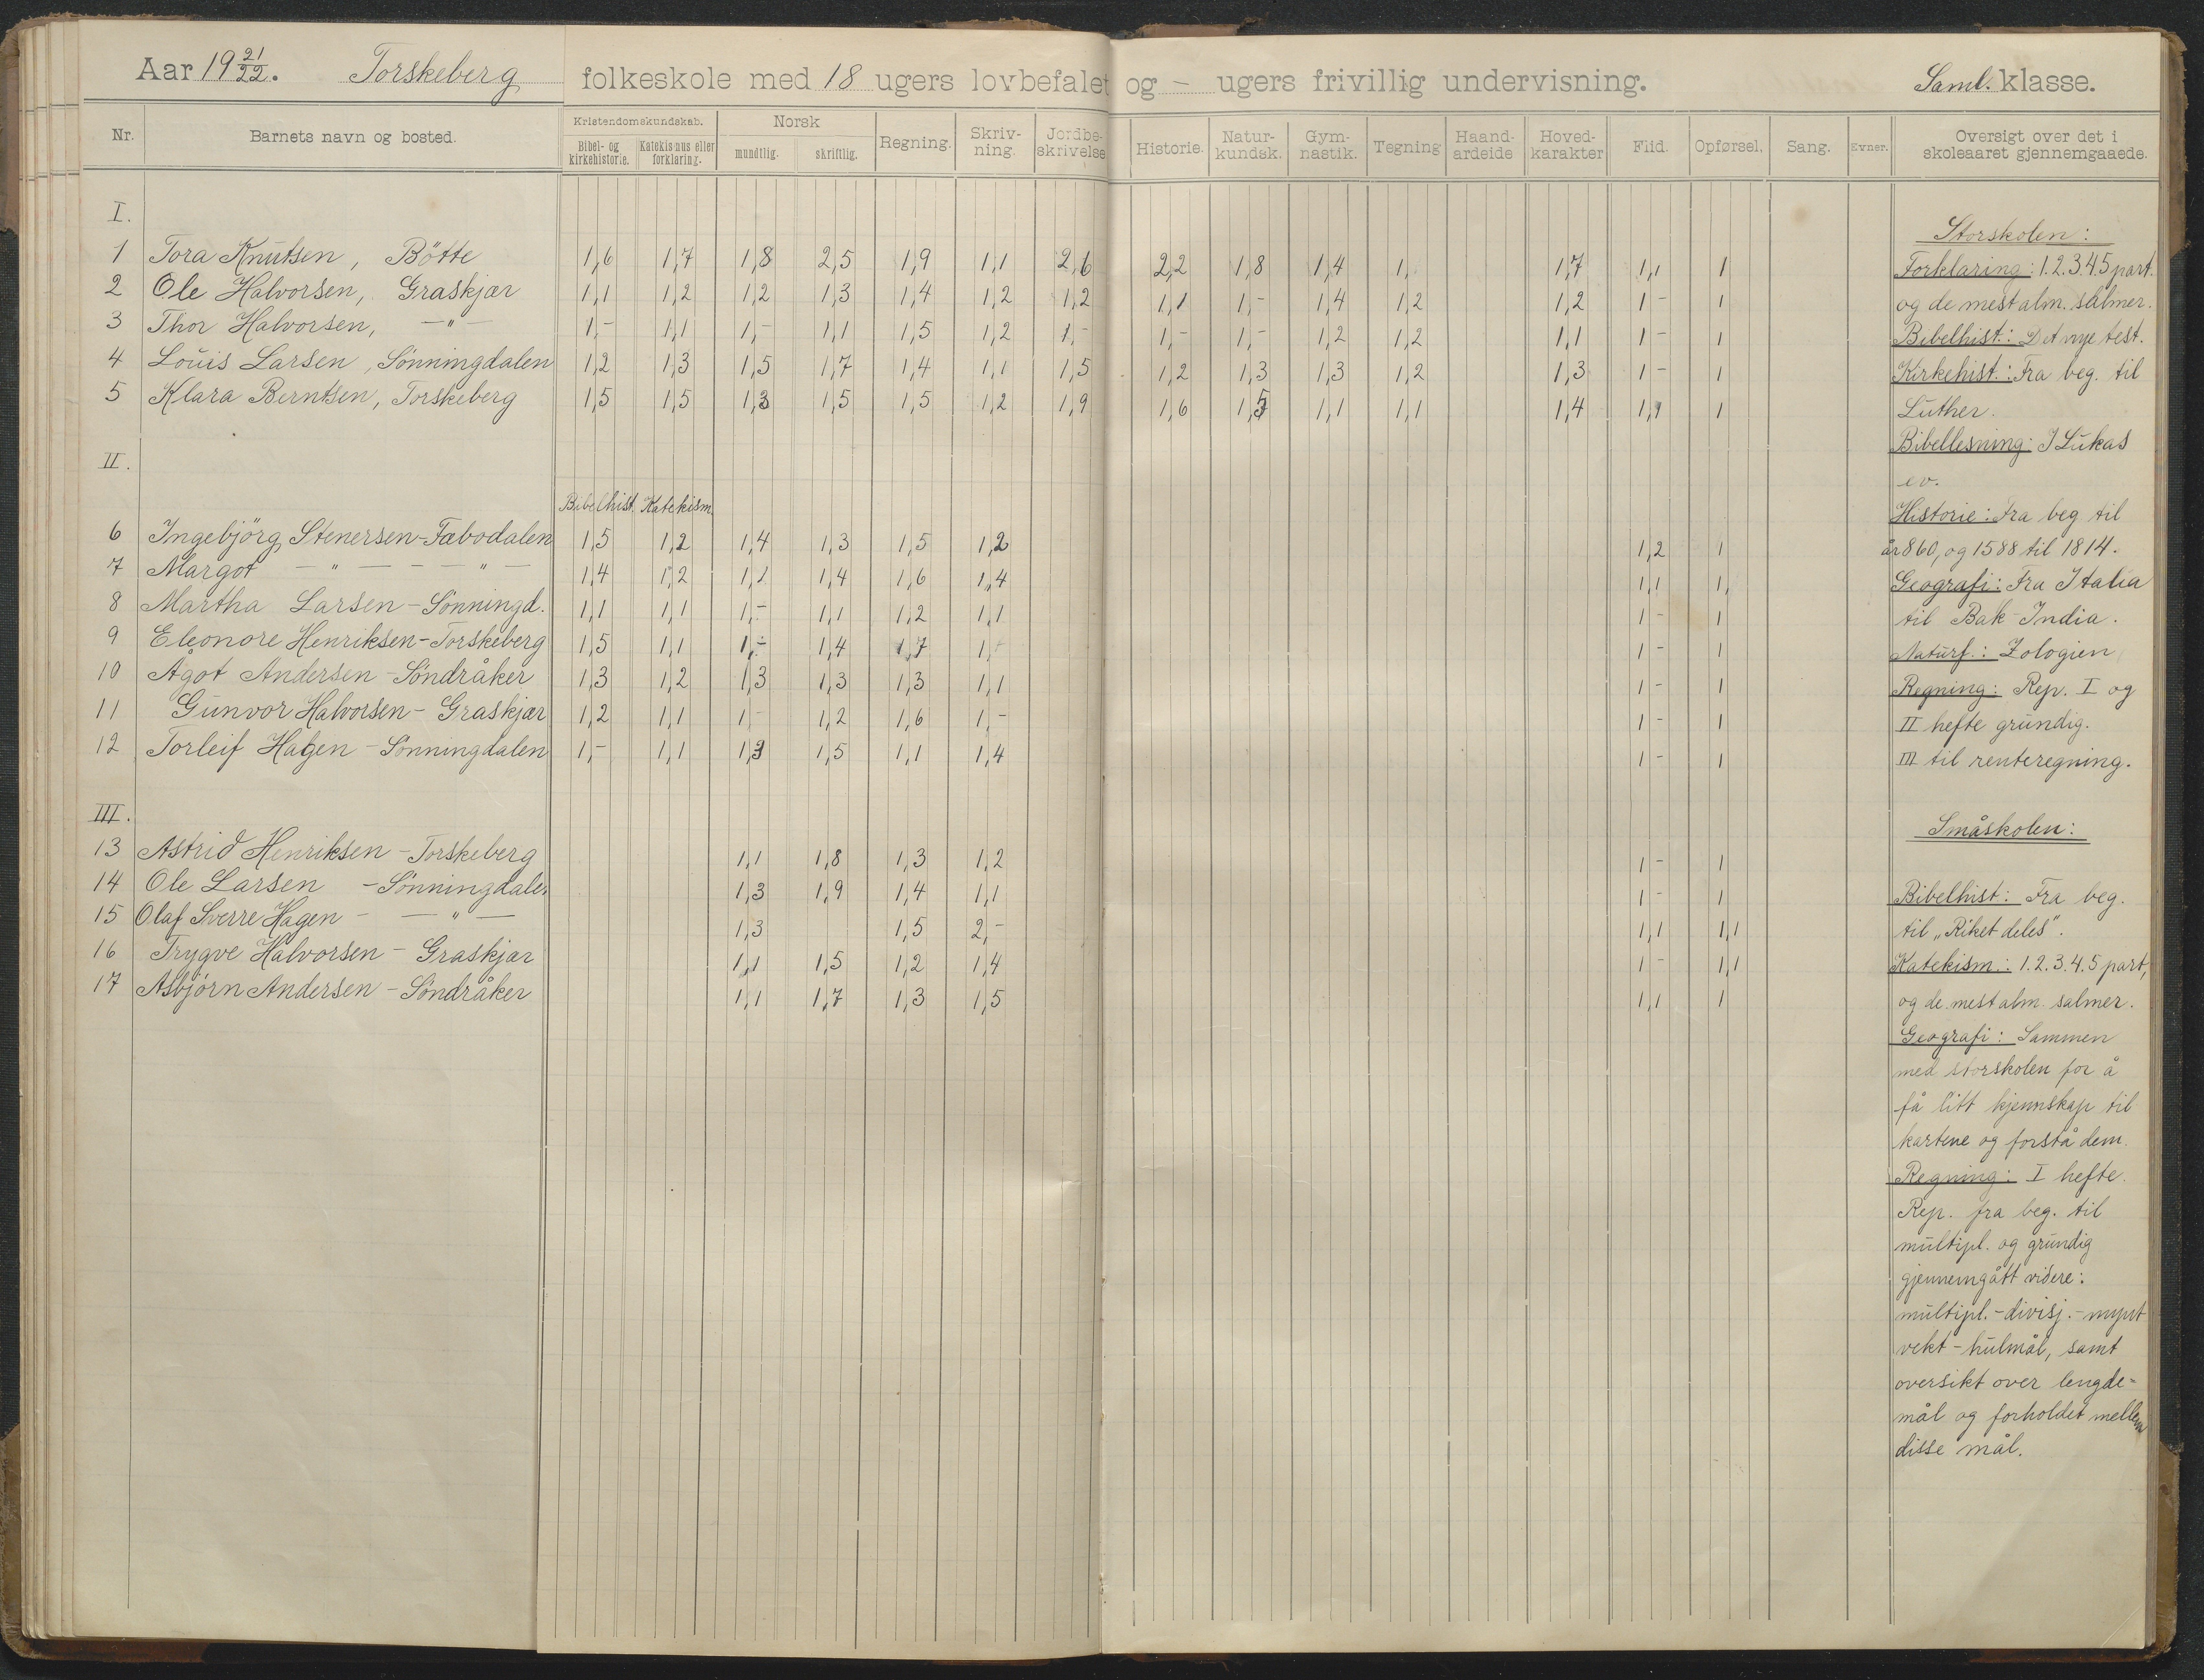 Aar 19 21/22. Torskeberg folkeskole med 18 ugers lovbefalet og - ugers frivillig undervisning. Saml. klasse.
Nr. Barnets navn og bosted. Kristendomskundskab. Bibel- og kirkehistorie. Katekismus eller forklaring. Norsk mundtlig. skriftlig. Regning. Skriv-ning. Jordbe-skrivelse Historie. Natur-kundsk. Gym-nastik. Tegning Haand-arbeide Hoved-karakter Flid. Opførsel. Sang. Evner. Oversigt over det i skoleaaret gjennemgaaede.
I.
1 Tora Knutsen, Bötte 1,6 1,7 1,8 2,5 1,9 1,1 2,6 2,2 1,8 1,4 1, 1,7 1,1 1
2 Ole Halvorsen, Graskjær 1,1 1,2 1,2 1,3 1,4 1,2 1,2 1,1 1,- 1,4 1,2 1,2 1 - 1
3 Thor Halvorsen, - " - 1,- 1,1 1,- 1,1 1,5 1,2 1,- 1,- 1,- 1,2 1,2 1,1 1 - 1
4 Louis Larsen, Sönningdalen 1,2 1,3 1,5 1,7 1,4 1,1 1,5 1,2 1,3 1,3 1,2 1,3 1 - 1
5 Klara Berntsen, Torskeberg 1,5 1,5 1,3 1,5 1,5 1,2 1,9 1,6 1,5 1,1 1,1 1,4 1,1 1
II.
Bibelhist. Katekism.
6 Ingebjörg Stenersen - Fæbodalen 1,5 1,2 1,4 1,3 1,5 1,2 1,2 1
7 Margot - " - - - " - 1,4 1,2 1,1 1,4 1,6 1,4 1,1 1,
8 Martha Larsen - Sönningd. 1,1 1,1 1,- 1,1 1,2 1,1 1 - 1
9 Eleonore Henriksen - Torskeberg 1,5 1,1 1,- 1,4 1,7 1,- 1 - 1
10 Ågot Andersen - Söndråker 1,3 1,2 1,3 1,3 1,3 1,1 1 - 1
11 Gunvor Halvorsen - Graskjær 1,2 1,1 1,- 1,2 1,6 1,- 1 - 1
12 Torleif Hagen - Sönningdalen 1,- 1,1 1,3 1,5 1,1 1,4 1 - 1
III.
13 Astrid Henriksen - Torskeberg 1,1 1,8 1,3 1,2 1 - 1
14 Ole Larsen - Sönningdale. 1,3 1,9 1,4 1,1 1 - 1
15 Olaf Sverre Hagen - - " - 1,3 1,5 2,- 1,1 1,1
16 Trygve Halvorsen - Graskjær 1,1 1,5 1,2 1,4 1 - 1,1
17 Asbjörn Andersen - Söndråker 1,1 1,7 1,3 1,5 1,1 1
Storskolen:
Forklaring: 1.2.3.4.5 part.
og de mest alm. salmer.
Bibelhist.: Det nye test.
Kirkehist.: Fra beg. til
Luther.
Bibellesning: I Lukas
ev.
Historie: Fra beg til
år 860, og 1588 til 1814.
Geografi: Fra Italia
til Bak-India.
Naturf.: Zologien
Regning: Rep. I og
II hefte grundig.
III til renteregning.
Småskolen:
Bibelhist: Fra beg.
til „Riket deles".
Katekism.: 1.2.3.4.5 part,
og de mest alm. salmer.
Geografi: Sammen
med storskolen for å
få litt kjennskap til
kartene og forstå dem.
Regning: I hefte.
Rep. fra beg. til
multipl. og grundig
gjennemgått videre:
multipl.-divisj.-mynt
vekt-hulmål, samt
oversikt over lengde-
mål og forholdet mellem
disse mål.